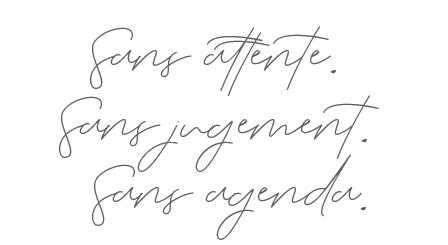 Sans attente.
Sans jugement.
Sans agenda.